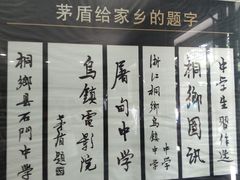 茅盾给家乡的题字
中学生習作選
桐鄉
浙江桐鄉烏鎮中学
中学
屠甸中学
烏鎮電影院
茅盾題
桐鄉县石門中学